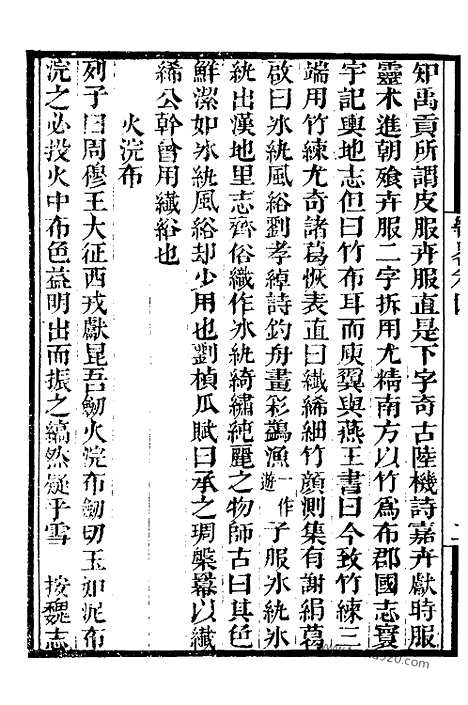 知禹貢所謂皮服卉服直是下字奇古陸機詩嘉卉獻時服
靈朮進朝飱卉服二字拆用尤精南方以竹爲布郡國志寰
宇記輿地志但曰竹布耳而庾翼與燕王書曰今致竹練三
端用竹練尤奇諸葛恢表直曰纖絺細竹顏測集有謝絹葛
啟曰冰紈風綌劉孝綽詩釣舟畫彩鷁漁一作遊子服冰紈冰
紈出漢地里志齊俗纖作冰紈綺繡純麗之物師古曰其色
鮮潔如冰紈風綌却少用也劉楨瓜賦曰承之琱槃羃以纖
絺公幹曾用纖綌也
火浣布
列子曰周穆王大征西戎獻昆吾劒火浣布劒切玉如泥布
浣之必投火中布色益明出而振之縞然疑乎雪 按魏志